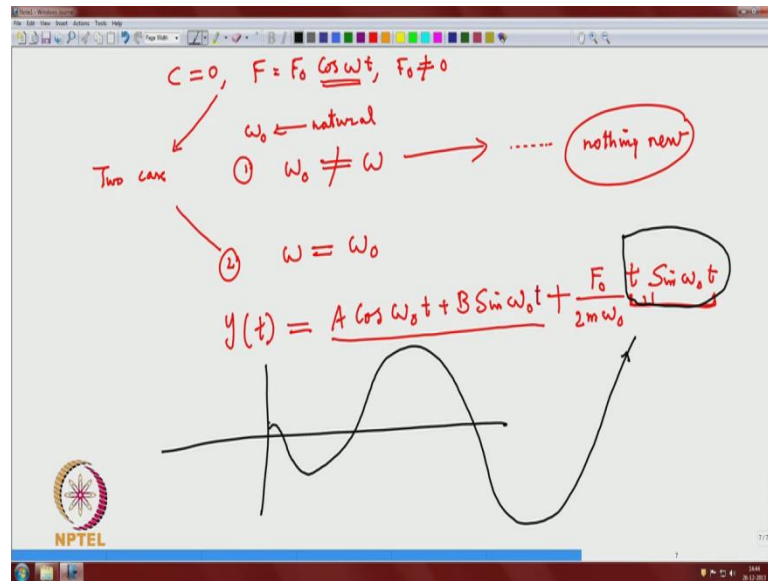 Note1 - Windows Journal
File Edit View Insert Actions Tools Help
Page Width
C = 0, F = F₀ Cos ωt, F₀ ≠ 0
ω₀ ← natural
Two case ① ω₀ ≠ ω → ...... nothing new
② ω = ω₀
y(t) = A Cos ω₀t + B Sin ω₀t + F₀/2mω₀ t Sin ω₀t
NPTEL
7/7
7
14:44
26-12-2013